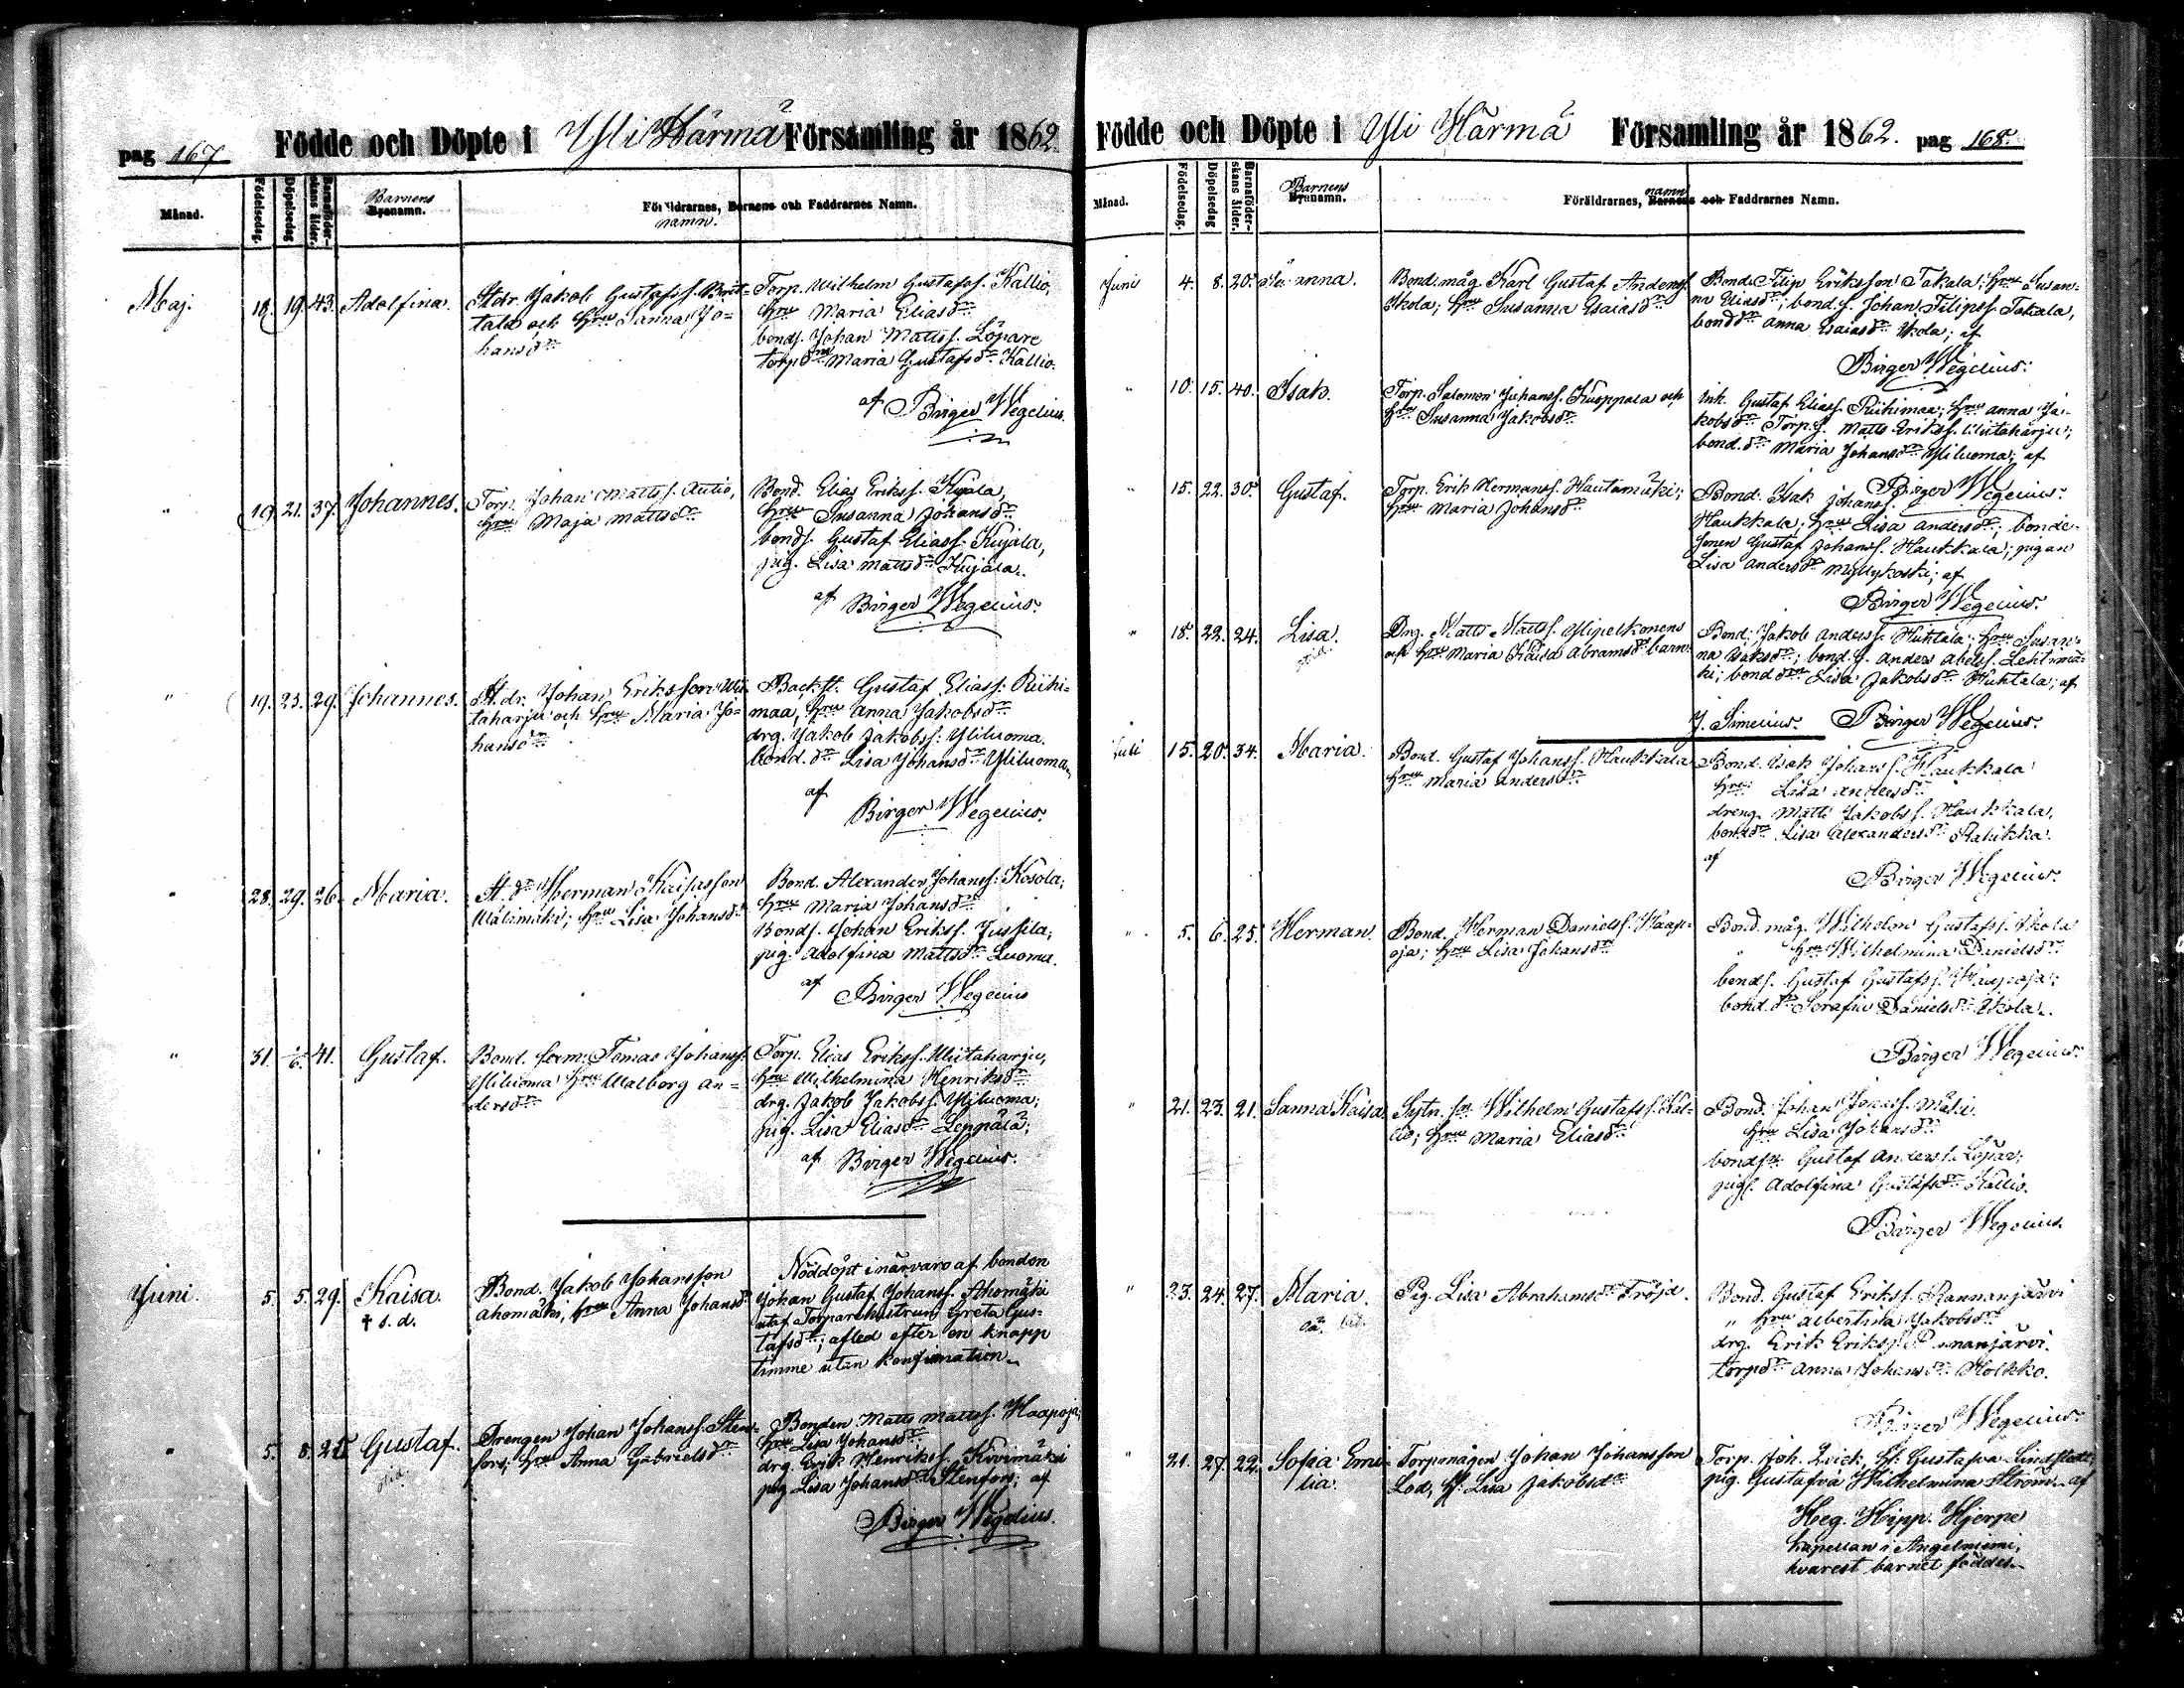 pag 167
Födde och Döpte i Yli Härmä Församling år 1862.
Månad.
Födelsedag.
Döpelsedag
Barnaföderskans ålder.
Barnens
Byanamn.
Föräldrarnes, Barnens och Faddrarnes Namn.
namn.
Maj. 18. 19. 43. Adolfina.
Stdr. Jakob Gustafss.
tala och hru Sanna Jo-
hansdr
Torp. Wilhelm Gustafss. Kallio,
hru Maria Eliasdr
bonds. Johan Mattss. Löpare
torpdr Maria Gustafsdr Kallio.
af Birger Wegelius.
" 19. 21. 37. Johannes.
Torp. Johan Mattss. Autio,
hru Maja Mattsdr
Bond. Elias Erikss. Kujala,
hru Susanna Johansdr
bonds. Gustaf Eliass. Kujala,
pig. Lisa Mattsdr Kujala.
af Birger Wegelius.
" 19. 23. 29. Johannes.
St. dr. Johan Eriksson Wii-
taharju och hru Maria Jo-
hansdr
Backst. Gustaf Eliass. Riihi-
maa, hru Anna Jakobsdr
drg. Jakob Jakobss. Yliluoma.
bond. dr Lisa Johansdr Yliluoma,
af
Birger Wegelius.
" 28. 29. 26. Maria.
St. dr Herman Kaisasson
Wälimäki; hru Lisa Johansdr
Bond. Alexander Johanss. Kosola;
hru Maria Johansdr
Bonds. Johan Erikss. Jussila;
pig. Adolfina Mattsdr Luoma.
af Birger Wegelius
" 31. 1/6. 41. Gustaf.
Bond. Tomas Johanss.
Yliluoma hru Walborg An-
dersdr
Torp. Elias Erikss. Wiitaharju,
hru Wilhelmina Henriksdr
drg. Jakob Jakobss. Yliluoma;
pig. Lisa Eliasdr Leppälä;
af Birger Wegelius.
Juni. 5. 5. 29. Kaisa.
† s. d.
Bond. Jakob Johansson
Ahomäki, hru Anna Johansdr
Nöddöpt i närvaro af bonden
Johan Gustaf Johanss. Ahomäki
utaf Torparehustrun Greta Gus-
tafsdr; afled efter en knapp
timme utan konfirmation.
" 5. 8. 25 Gustaf.
Drengen Johan Johanss. Sten-
fors; hru Anna Gabrielsdr
Bonden Matts Mattss. Haapoja;
hru Lisa Johansdr
drg. Erik Henrikss. Kivimäki
pig Lisa Johansdr Stenfors; af
Birger Wegelius.
Födde och Döpte i Yli Härmä Församling år 1862. pag 168.
Månad.
Födelsedag.
Döpelsedag
Barnaföderskans ålder.
Barnens
Byanamn.
namn
Föräldrarnes, Barnens och Faddrarnes Namn.
Juni 4. 8. 20.
Bond.måg Karl Gustaf Anderss.
Ikola; hru Susanna Esaiasdr
Bond. Filip Eriksson Takala; hru Susan-
na Eliasdr; bond.s. Johan Filipss. Takala,
bonddr Anna Esaiasdr Ikola; af
Birger Wegelius.
" 10. 15. 40. Isak.
Torp. Salomon Johanss. Kuoppala och
hru Susanna Jakobsdr
Inh. Gustaf Eliass. Riihimaa; hru Anna Ja-
kobsdr Torp.s. Matts Erikss. Wiitaharju;
bond.dr Maria Johansdr Yliluoma; af
Birger Wegelius.
" 15. 22. 30. Gustaf.
Torp. Erik Hermanss. Hautamäki;
hru Maria Johansdr
Bond. Isak Johanss.
Haukkala; hru Lisa Andersdr; bonde-
sonen Gustaf Johanss. Haukkala; pigan
Lisa Andersdr Myllykoski; af
Birger Wegelius.
" 18. 22. 24. Lisa.
Drg. Matts Mattss. Ylipelkonens
och hru Maria Kaisa Abramsdr barn
Bond. Jakob Anderss. Huhtala; hru Susan-
na Isaksdr; bond.s. Anders Abelss. Lehtimä-
ki; bonddr Lisa Jakobsdr Huhtala; af
J. Simelius. Birger Wegelius.
Juli 15. 20. 34. Maria.
Bond. Gustaf Johanss. Haukkala
hru Maria Andersdr
Bond. Isak Johanss. Haukkala
hru Lisa Andersdr
dreng. Matts Jakobss. Haukkala,
bonddr Lisa Alexandersdr
af
Birger Wegelius.
" 5. 6. 25. Herman.
Bond. Herman Danielss. Haap-
oja; hru Lisa Johansdr
Bond. måg Wilhelm Gustafss. Ikola
" hru Wilhelmina Danielsdr
bonds. Gustaf Gustafss. Haapoja;
bond.dr Serafia Danielsdr Ikola.
Birger Wegelius.
" 21. 23. 21. Sanna Kaisa
Wilhelm Gustafss. Kal-
lio; hru Maria Eliasdr
Bond. Johan Mäki.
hru Lisa Johansdr
bonds. Gustaf Anderss. Löpar;
pig. Adolfina Gustafsdr Kallio.
Birger Wegelius.
" 23. 24. 27. Maria.
oä.
Pig. Lisa Abrahamsdr Fröjd.
Bond. Gustaf Erikss. Rannanjärvi
" hru Albertina Jakobsdr
drg. Erik Erikss. Rannanjärvi.
torpdr Anna Johansdr Holkko.
Birger Wegelius.
" 21. 27. 22. Sofia Emi-
lia.
Torpmågen Johan Johansson
Lod, H. Lisa Jakobsdr
Torp. Joh. Qvick, H. Gustafva
pig. Gustafva Wilhelmina Ström. af
Heg. Hipp. Hjerpe
kapellan i Angelniemi,
hvarest barnet föddes.